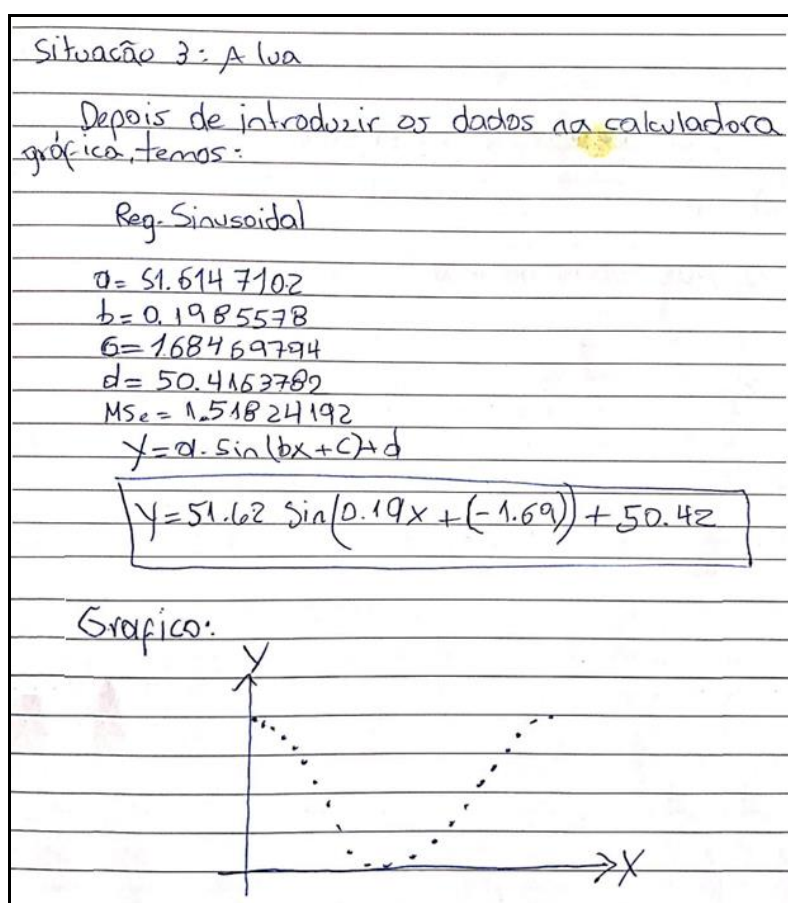 Situação 3: A lua
Depois de introduzir os dados na calculadora
gráfica, temos:
Reg. Sinusoidal
a= 51.6147102
b= 0.1985578
c= 1.68469794
d= 50.4163782
MSe = 1.51824192
Y= a. Sin(bx+c)+d
Y=51.62 Sin(0.19x +(-1.69)) + 50.42
Grafico:
Y
X